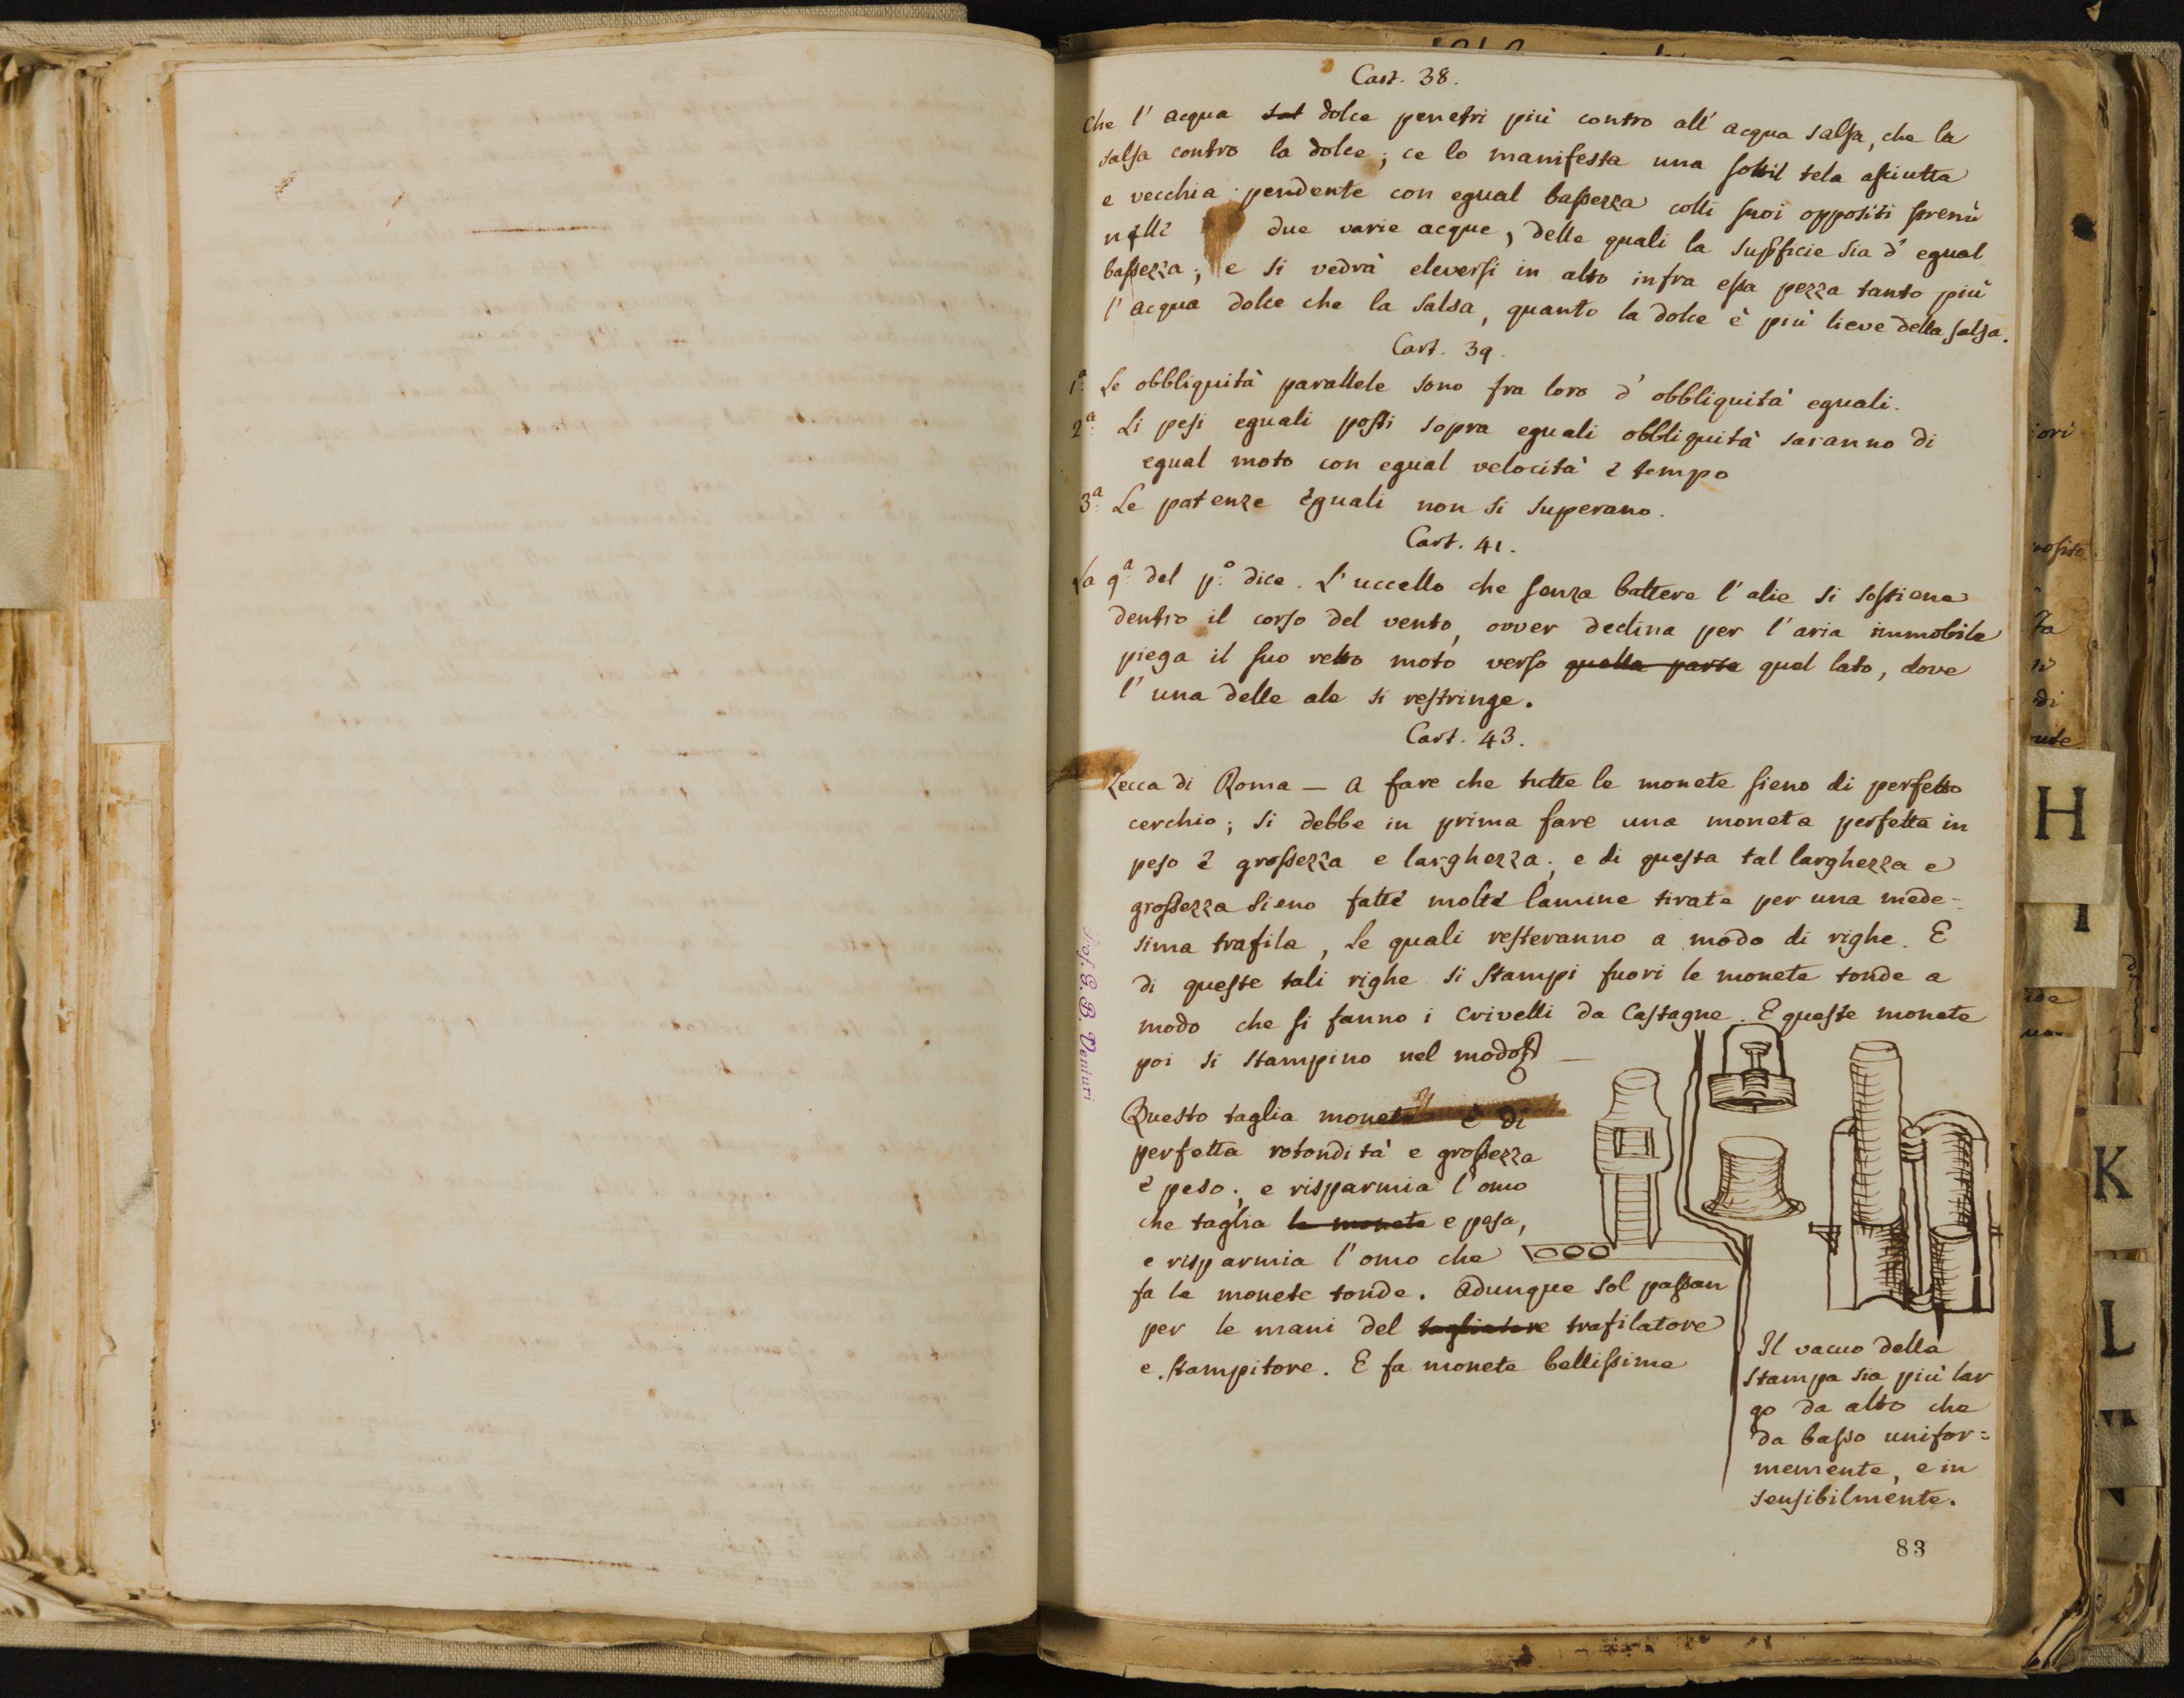 Cart. 38.
Che l' acqua sal dolce penetri più contro all' acqua salsa, che la
salsa contro la dolce; ce lo manifesta una sottil tela asciutta
e vecchia pendente con egual bassezza colli suoi oppositi stremi
nelle due varie acque, delle quali la supficie sia d' egual
bassezza; e si vedrà eleversi in alto infra essa pezza tanto più
l' acqua dolce che la salsa, quanto la dolce è più lieve della salsa.
Cart. 39.
1ª Le obbliquità parallele sono fra loro d' obbliquità eguali.
2ª Li pesi eguali posti sopra eguali obbliquità saranno di
egual moto con egual velocità e tempo
3ª Le potenze eguali non si superano.
Cart. 41.
La 9ª del pº dice. L' uccello che senza battere l' alie si sostiene
dentro il corso del vento, ovver declina per l' aria immobile
piega il suo retto moto verso quella parte quel lato, dove
l' una delle ale si restringe.
Cart. 43.
Zecca di Roma — A fare che tutte le monete sieno di perfetto
cerchio; si debbe in prima fare una moneta perfetta in
peso e grossezza e larghezza; e di questa tal larghezza e
grossezza sieno fatte molte lamine tirate per una mede-
sima trafila, le quali resteranno a modo di righe. E
di queste tali righe si stampi fuori le monete tonde a
modo che si fanno i crivelli da Castagne. E queste monete
poi si stampino nel modo —
Questo taglia monete è di
perfetta rotondità e grossezza
e peso; e risparmia l' omo
che taglia le monete e pesa,
e risparmia l' omo che
fa le monete tonde. Adunque sol passan
per le mani del tagliatore trafilatore
e stampitore. E fa monete bellissime
Il vacuo della
stampa sia più lar
go da alto che
da basso unifor=
memente, e in
sensibilmente.
83
Prof. G. B. Venturi
iori
di
H
I
K
L